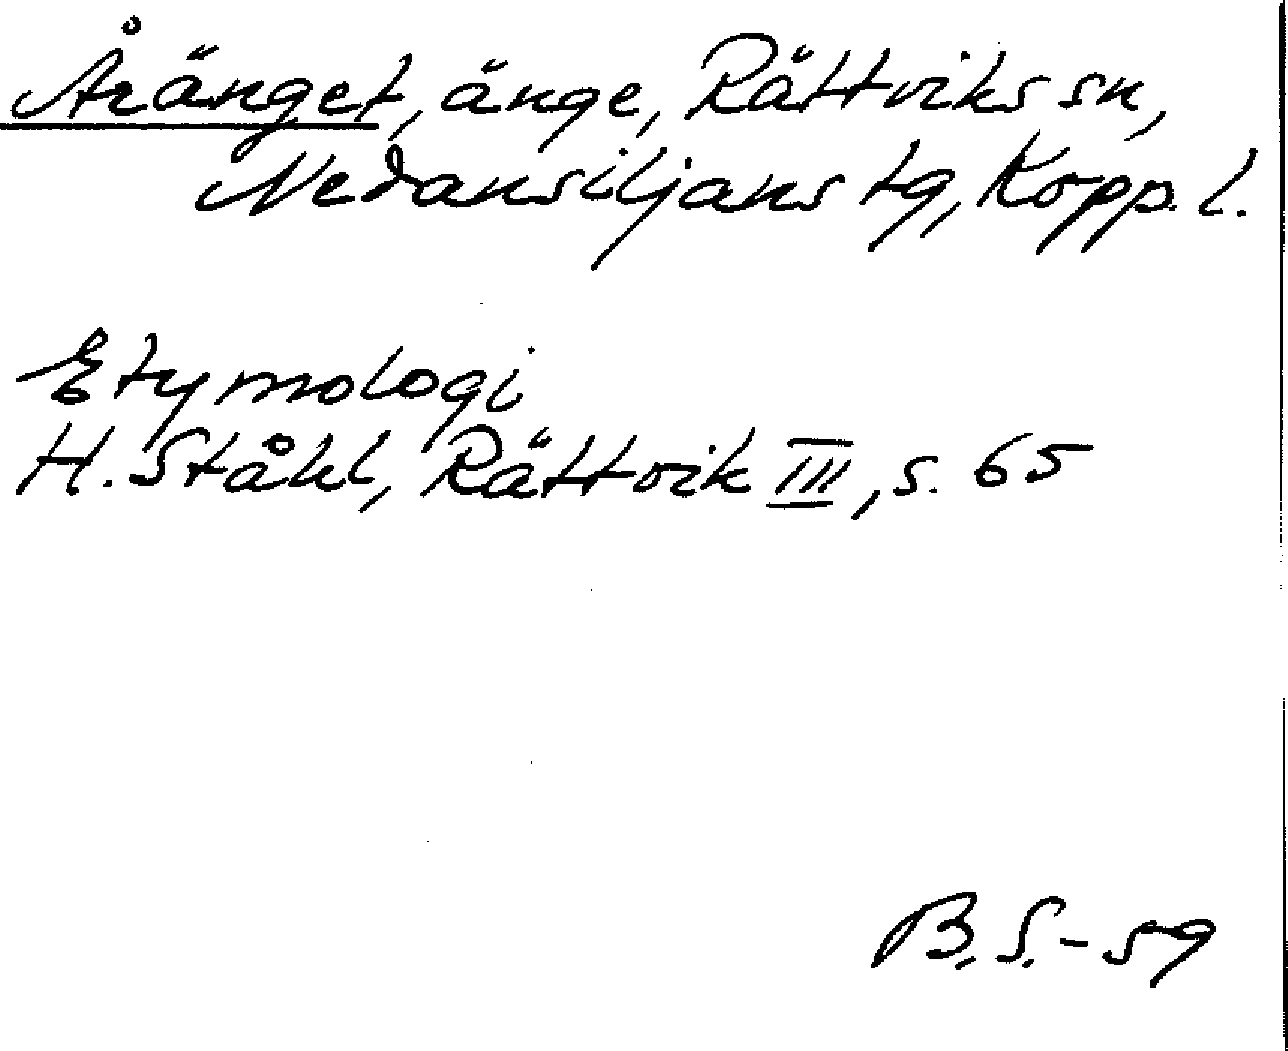 Åränget, änge, Rättviks sn,
Nedansiljans tg, Kopp. l.
Etymologi
H. Ståhl, Rättvik III, s. 65
B. S. - 59